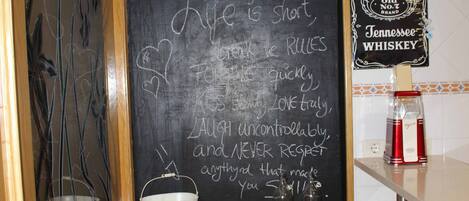 Life is short,
break the RULES
FORGIVE quickly,
KISS slowly, LOVE truly,
LAUGH uncontrollably,
and NEVER REGRET
anything that made
you SMILE
BRAND
OLD
NO. 7
Tennessee
WHISKEY